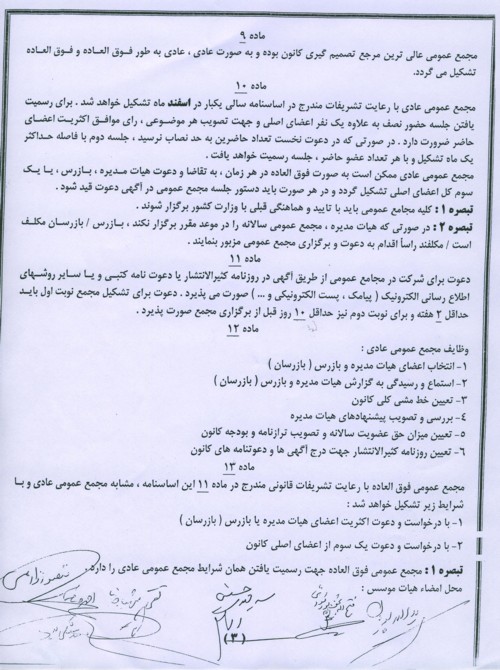 ماده ۹
مجمع عمومی عالی ترین مرجع تصمیم گیری کانون بوده و به صورت عادی ، عادی به طور فوق العاده و فوق العاده
تشکیل می گردد.
ماده ۱۰
مجمع عمومی عادی با رعایت تشریفات مندرج در اساسنامه سالی یکبار در اسفند ماه تشکیل خواهد شد . برای رسمیت
یافتن جلسه حضور نصف به علاوه یک نفر اعضای اصلی و جهت تصویب هر موضوعی ، رای موافق اکثریت اعضای
حاضر ضرورت دارد . در صورتی که در دعوت نخست تعداد حاضرین به حد نصاب نرسید ، جلسه دوم با فاصله حداکثر
یک ماه تشکیل و با هر تعداد عضو حاضر ، جلسه رسمیت خواهد یافت .
مجمع عمومی عادی ممکن است به صورت فوق العاده در هر زمان ، به تقاضا و دعوت هیات مدیره ، بازرس ، یا یک
سوم کل اعضای اصلی تشکیل گردد و در هر صورت باید دستور جلسه مجمع عمومی در آگهی دعوت قید شود .
تبصره ۱ : کلیه مجامع عمومی باید با تایید و هماهنگی قبلی با وزارت کشور برگزار شوند .
تبصره ۲ : در صورتی که هیات مدیره ، مجمع عمومی سالانه را در موعد مقرر برگزار نکند ، بازرس / بازرسان مکلف
است / مکلفند راساً اقدام به دعوت و برگزاری مجمع عمومی مزبور بنمایند .
ماده ۱۱
دعوت برای شرکت در مجامع عمومی از طریق آگهی در روزنامه کثیرالانتشار یا دعوت نامه کتبی و یا سایر روشهای
اطلاع رسانی الکترونیک ( پیامک ، پست الکترونیکی و ... ) صورت می پذیرد . دعوت برای تشکیل مجمع نوبت اول باید
حداقل ۲ هفته و برای نوبت دوم نیز حداقل ۱۰ روز قبل از برگزاری مجمع صورت پذیرد .
ماده ۱۲
وظایف مجمع عمومی عادی :
۱- انتخاب اعضای هیات مدیره و بازرس ( بازرسان )
۲- استماع و رسیدگی به گزارش هیات مدیره و بازرس ( بازرسان )
۳- تعیین خط مشی کلی کانون
۴- بررسی و تصویب پیشنهادهای هیات مدیره
۵- تعیین میزان حق عضویت سالانه و تصویب ترازنامه و بودجه کانون
۶- تعیین روزنامه کثیرالانتشار جهت درج آگهی ها و دعوتنامه های کانون
ماده ۱۳
مجمع عمومی فوق العاده با رعایت تشریفات قانونی مندرج در ماده ۱۱ این اساسنامه ، مشابه مجمع عمومی عادی و با
شرایط زیر تشکیل خواهد شد :
۱- با درخواست و دعوت اکثریت اعضای هیات مدیره یا بازرس ( بازرسان )
۲- با درخواست و دعوت یک سوم از اعضای اصلی کانون
تبصره ۱ : مجمع عمومی فوق العاده جهت رسمیت یافتن همان شرایط مجمع عمومی عادی را دارد .
محل امضاء هیات موسس :
( ۳ )